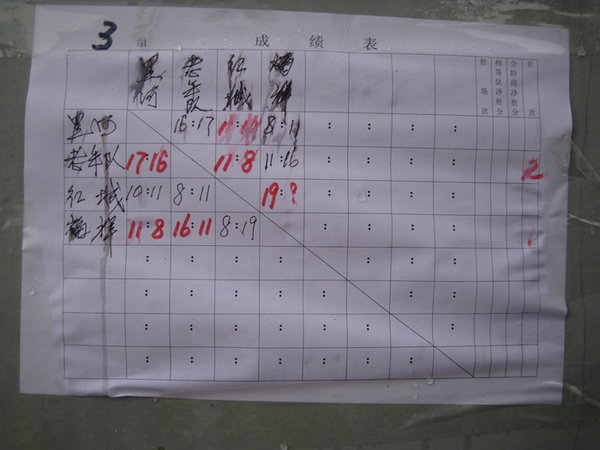 3 组 成绩表
老年队 红城
胜场次 相等队净胜分 全阶段净胜分 名次
黑河 16:17 8:11
老年队 17:16 11:8 11:16 2
红城 10:11 8:11 19:?
11:8 16:11 8:19 1